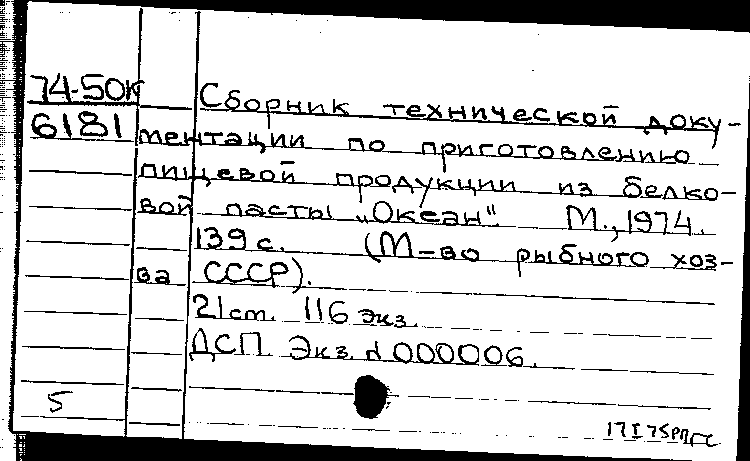 74-50К Сборник технической доку-
6181 ментации по приготовлению
пищевой продукции из белко-
вой пасты „Океан". М., 1974.
139 с. (М-во рыбного хоз-
ва СССР).
21 см. 116 экз.
ДСП Экз. № 000006.
5
17 I 75